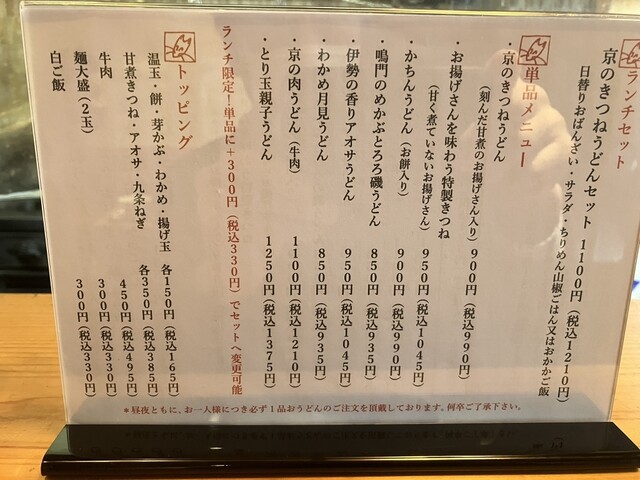 ランチセット
京のきつねうどんセット 1100円（税込1210円）
日替りおばんざい・サラダ・ちりめん山椒ごはん又はおかかご飯
単品メニュー
・京のきつねうどん
（刻んだ甘煮のお揚げさん入り）900円（税込990円）
・お揚げさんを味わう特製きつね
（甘く煮ていないお揚げさん）950円（税込1045円）
・かちんうどん（お餅入り）900円（税込990円）
・鳴門のめかぶとろろ磯うどん 850円（税込935円）
・伊勢の香りアオサうどん 950円（税込1045円）
・わかめ月見うどん 850円（税込935円）
・京の肉うどん（牛肉）1100円（税込1210円）
・とり玉親子うどん 1250円（税込1375円）
ランチ限定！単品に＋300円（税込330円）でセットへ変更可能
トッピング
温玉・餅・芽かぶ・わかめ・揚げ玉 各150円（税込165円）
甘煮きつね・アオサ・九条ねぎ 各350円（税込385円）
牛肉 450円（税込495円）
麺大盛（2玉）300円（税込330円）
白ご飯 300円（税込330円）
＊昼夜ともに、お一人様につき必ず1品おうどんのご注文を頂戴しております。何卒ご了承下さい。